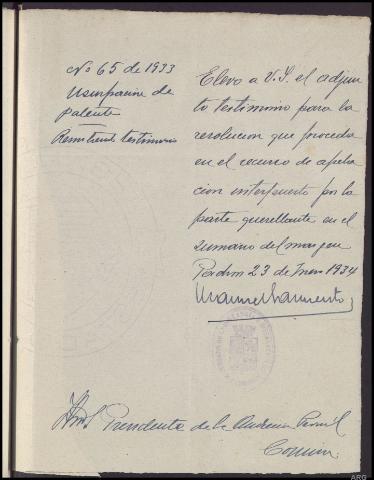 Nº 65 de 1933
Usurpacion de
patente
Remitiendo testimonio
Elevo a V.S. el adjun
to testimonio para la
resolucion que proceda
en el recurso de apela
cion interpuesto por la
parte querellante en el
sumario del margen
Padron 23 de Enero 1934
Manuel Sarmiento
Presidente de la Audiencia
ARG